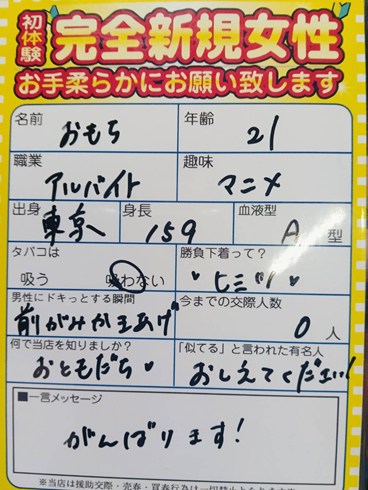 初体験
完全新規女性
お手柔らかにお願い致します
名前 おもち 年齢 21
職業 アルバイト 趣味 マニメ
出身 東京 身長 159 血液型 A 型
タバコは 吸う 吸わない 勝負下着って? ♥ ヒミツ ♥
男性にドキっとする瞬間 前がみかきあげ 今までの交際人数 0 人
何で当店を知りましたか? おともだち ♥ 「似てる」と言われた有名人 おしえてください!
■一言メッセージ
がんばります!
※当店は援助交際・売春・買春行為は一切禁止となります